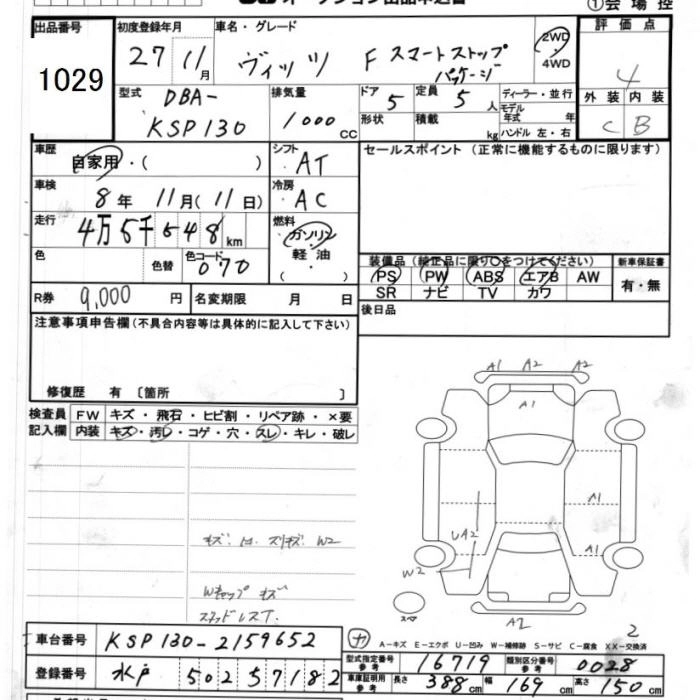 オークション出品申込書 ①会場控
出品番号 1029
初度登録年月 27年 11月
車名・グレード ヴィッツ F スマートストップ パッケージ
2WD・4WD
評価点 4
外装 C 内装 B
型式 DBA-KSP130
排気量 1000 CC
ドア 5 定員 5 人
形状 積載 kg
ディーラー・並行
モデル年式 年
ハンドル 左・右
車歴 自家用・( )
シフト AT
セールスポイント (正常に機能するものに限ります)
車検 8年 11月(11日)
冷房 AC
走行 4万5千548km
燃料 ガソリン・軽油・( )
色 色替 色コード 070
装備品 (純正品に限り○をつけてください)
PS PW ABS エアB AW
SR ナビ TV カワ
新車保証書 有・無
R券 9,000 円 名変期限 月 日
後日品
注意事項申告欄 (不具合内容等は具体的に記入して下さい)
修復歴 有 〔箇所 〕
検査員記入欄
FW キズ・飛石・ヒビ割・リペア跡・×要
内装 キズ・汚レ・コゲ・穴・スレ・キレ・破レ
A1 A2 A2
A1
A1
UA2
A1
W2
スペア
A2
W2
Wキャップ キズ
スタッドレスT.
2
車台番号 KSP130-2159652
A-キズ E-エクボ U-凹み W-補修跡 S-サビ C-腐食 XX-交換済
型式指定番号 参考 16719 類別区分番号 参考 0028
登録番号 水戸 502 ち 7182
車庫証明用 参考 長さ 388cm 幅 169cm 高さ 150cm